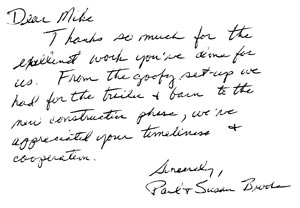 Dear Mike
Thanks so much for the
excellent work you've done for
us. From the goofy set-up we
had for the trailer & barn to the
new construction phase, we've
appreciated your timeliness &
cooperation.
Sincerely,
Paul & Susan